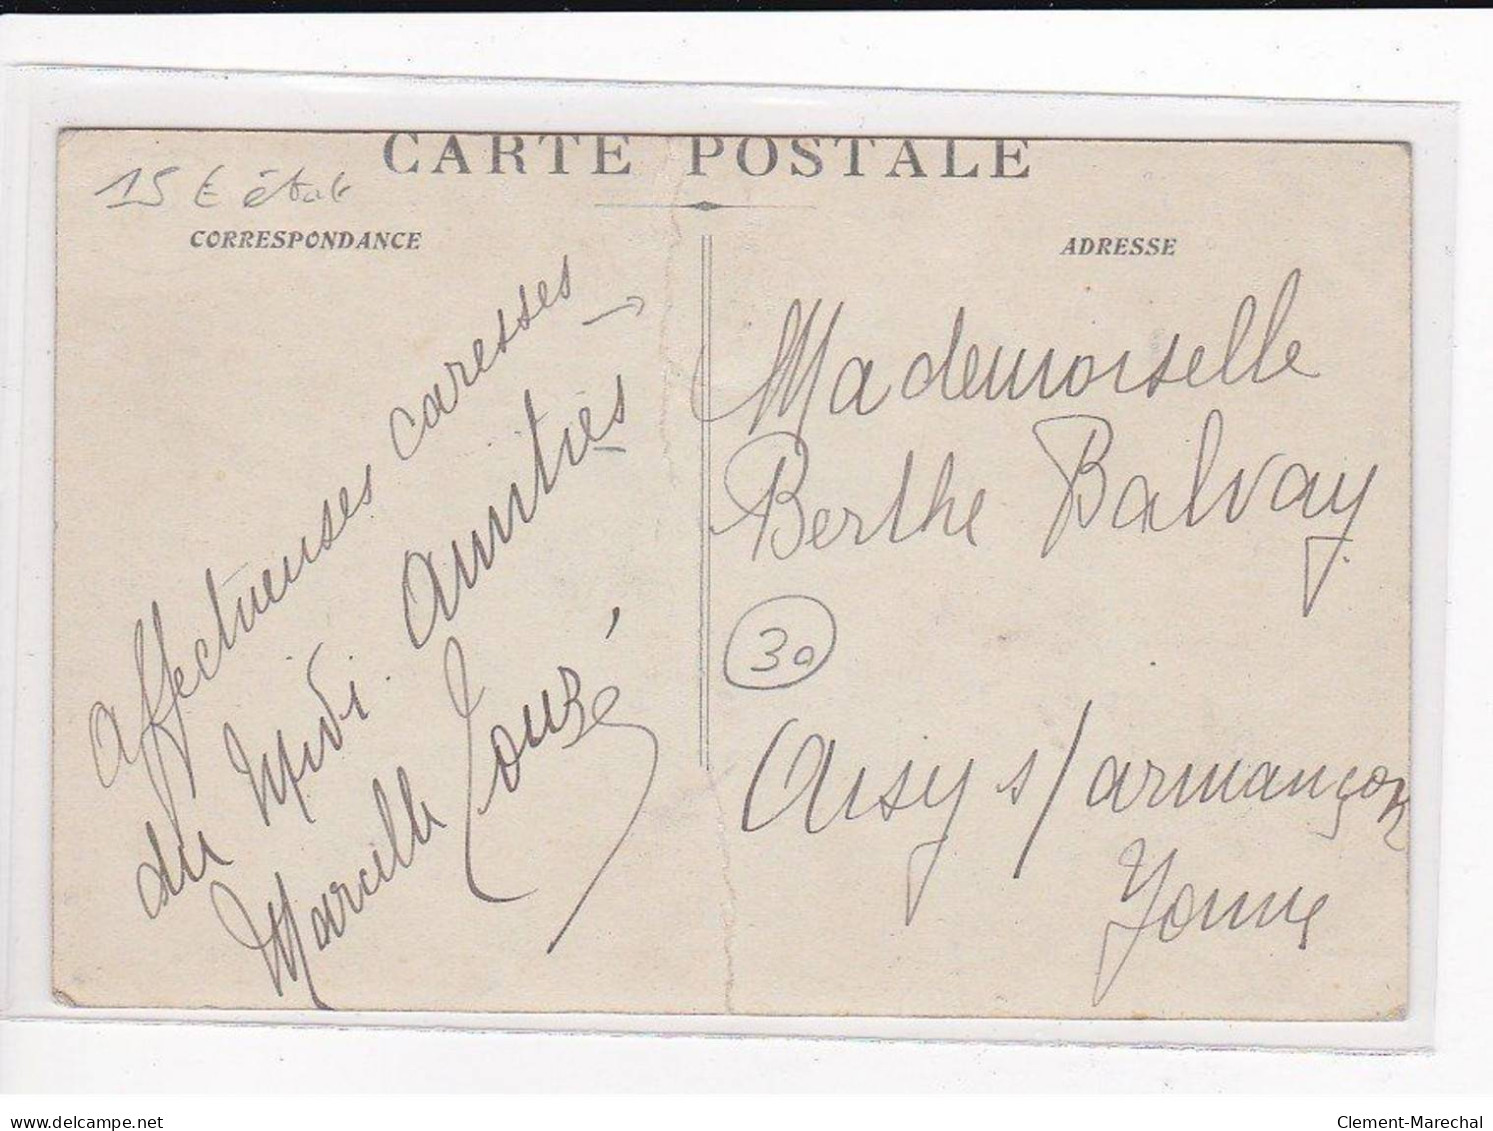 CARTE POSTALE
15 € état
CORRESPONDANCE
ADRESSE
affectueuses caresses
du Midi. Amitiés
Marcelle Touzé
Mademoiselle
Berthe Balvay
30
Aisy s/ armançon
Yonne
delcampe.net
Clement-Marechal